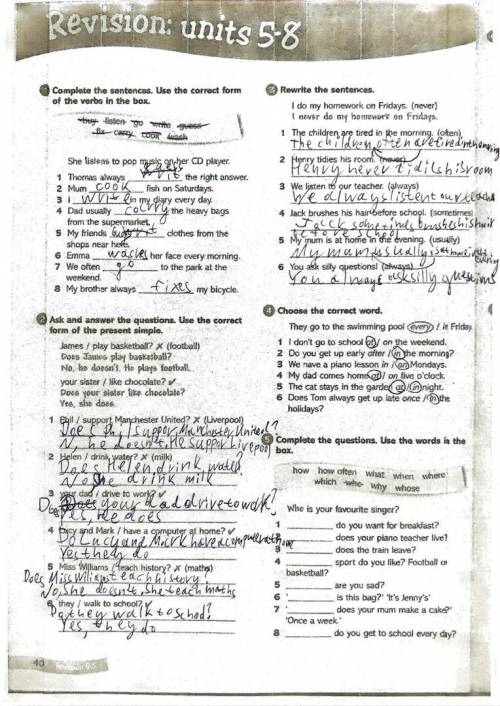 Revision: units 5-8
1 Complete the sentences. Use the correct form
of the verbs in the box.
buy listen go write guess
fix carry cook wash
She listens to pop music on her CD player.
1 Thomas always the right answer.
2 Mum cook fish on Saturdays.
3 I write in my diary every day.
4 Dad usually the heavy bags
from the supermarket.
5 My friends clothes from the
shops near here.
6 Emma her face every morning.
7 We often go to the park at the
weekend.
8 My brother always fixes my bicycle.
2 Ask and answer the questions. Use the correct
form of the present simple.
James / play basketball? ✗ (football)
Does James play basketball?
No, he doesn't. He plays football.
your sister / like chocolate? ✓
Does your sister like chocolate?
Yes, she does.
1 Phil / support Manchester United? ✗ (Liverpool)
Does Phil support Manchester United?
No, he doesn't. He support Liverpool
2 Helen / drink water? ✗ (milk)
Does Helen drink water
No she drink milk
3 your dad / drive to work? ✓
Does your dad drive to work?
Yes, he does
4 Lucy and Mark / have a computer at home? ✓
Do Lucy and Mark have a computer at home
Yes they do
5 Miss Williams / teach history? ✗ (maths)
Does Miss Wiliams teach history?
No, she doesn't, she teach maths
6 they / walk to school? ✓
Do they walk to school?
Yes, they do
40 Revision 5-8
3 Rewrite the sentences.
I do my homework on Fridays. (never)
I never do my homework on Fridays.
1 The children are tired in the morning. (often)
The children often are tired in the morning
2 Henry tidies his room. (never)
Henry never tidies his room
3 We listen to our teacher. (always)
We always listen our teacher
4 Jack brushes his hair before school. (sometimes)
Jack sometimes brushes his hair
before school
5 My mum is at home in the evening. (usually)
My mum usually is at home in the evening
6 You ask silly questions! (always)
You always ask silly questions
4 Choose the correct word.
They go to the swimming pool every / in Friday.
1 I don't go to school at / on the weekend.
2 Do you get up early after / in the morning?
3 We have a piano lesson in / on Mondays.
4 My dad comes home at / on five o'clock.
5 The cat stays in the garden at / in night.
6 Does Tom always get up late once / in the
holidays?
5 Complete the questions. Use the words in the
box.
how how often what when where
which who why whose
Who is your favourite singer?
1 do you want for breakfast?
2 does your piano teacher live?
3 does the train leave?
4 sport do you like? Football or
basketball?
5 are you sad?
6 ' is this bag?' 'It's Jenny's'
7 ' does your mum make a cake?'
'Once a week.'
8 do you get to school every day?